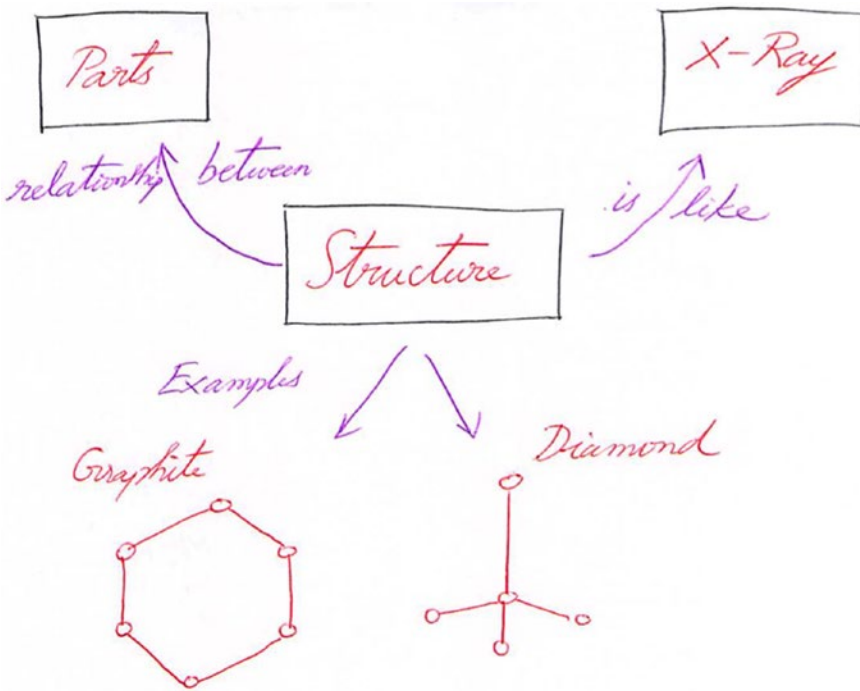 Parts
X-Ray
relationship between
is like
Structure
Examples
Graphite
Diamond